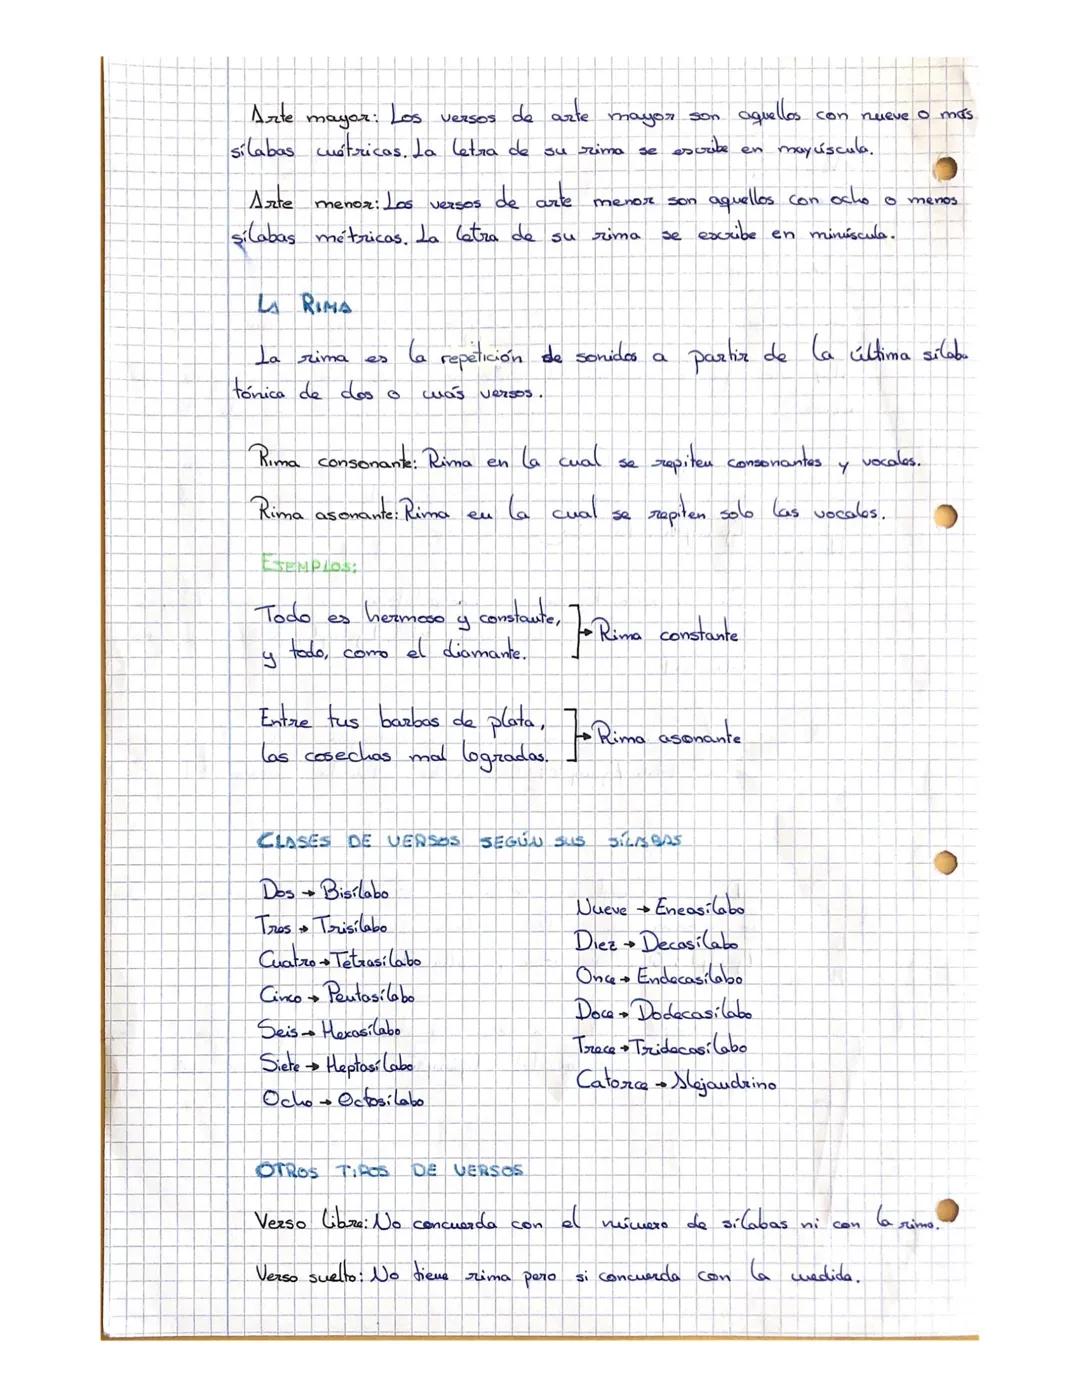 Arte mayor: Los versos de arte mayor son aquellos con nueve o más
sílabas métricas. La letra de su rima se escribe en mayúscula.
Arte menor: Los versos de arte menor son aquellos con ocho o menos
sílabas métricas. La letra de su rima se escribe en minúscula.
LA RIMA
La rima es la repetición de sonidos a partir de la última sílaba
tónica de dos o más versos.
Rima consonante: Rima en la cual se repiten consonantes y vocales.
Rima asonante: Rima en la cual se repiten solo las vocales.
EJEMPLOS:
Todo es hermoso y constante,
y todo, como el diamante.
→ Rima constante
Entre tus barbas de plata,
las cosechas mal logradas.
→ Rima asonante
CLASES DE VERSOS SEGÚN SUS SÍLABAS
Dos → Bisílabo
Tres → Trisílabo
Cuatro → Tetrasílabo
Cinco → Pentasílabo
Seis → Hexasílabo
Siete → Heptasílabo
Ocho → Octosílabo
Nueve → Eneasílabo
Diez → Decasílabo
Once → Endecasílabo
Doce → Dodecasílabo
Trece → Tridecasílabo
Catorce → Alejandrino
OTROS TIPOS DE VERSOS
Verso libre: No concuerda con el número de sílabas ni con la rima.
Verso suelto: No tiene rima pero si concuerda con la medida.